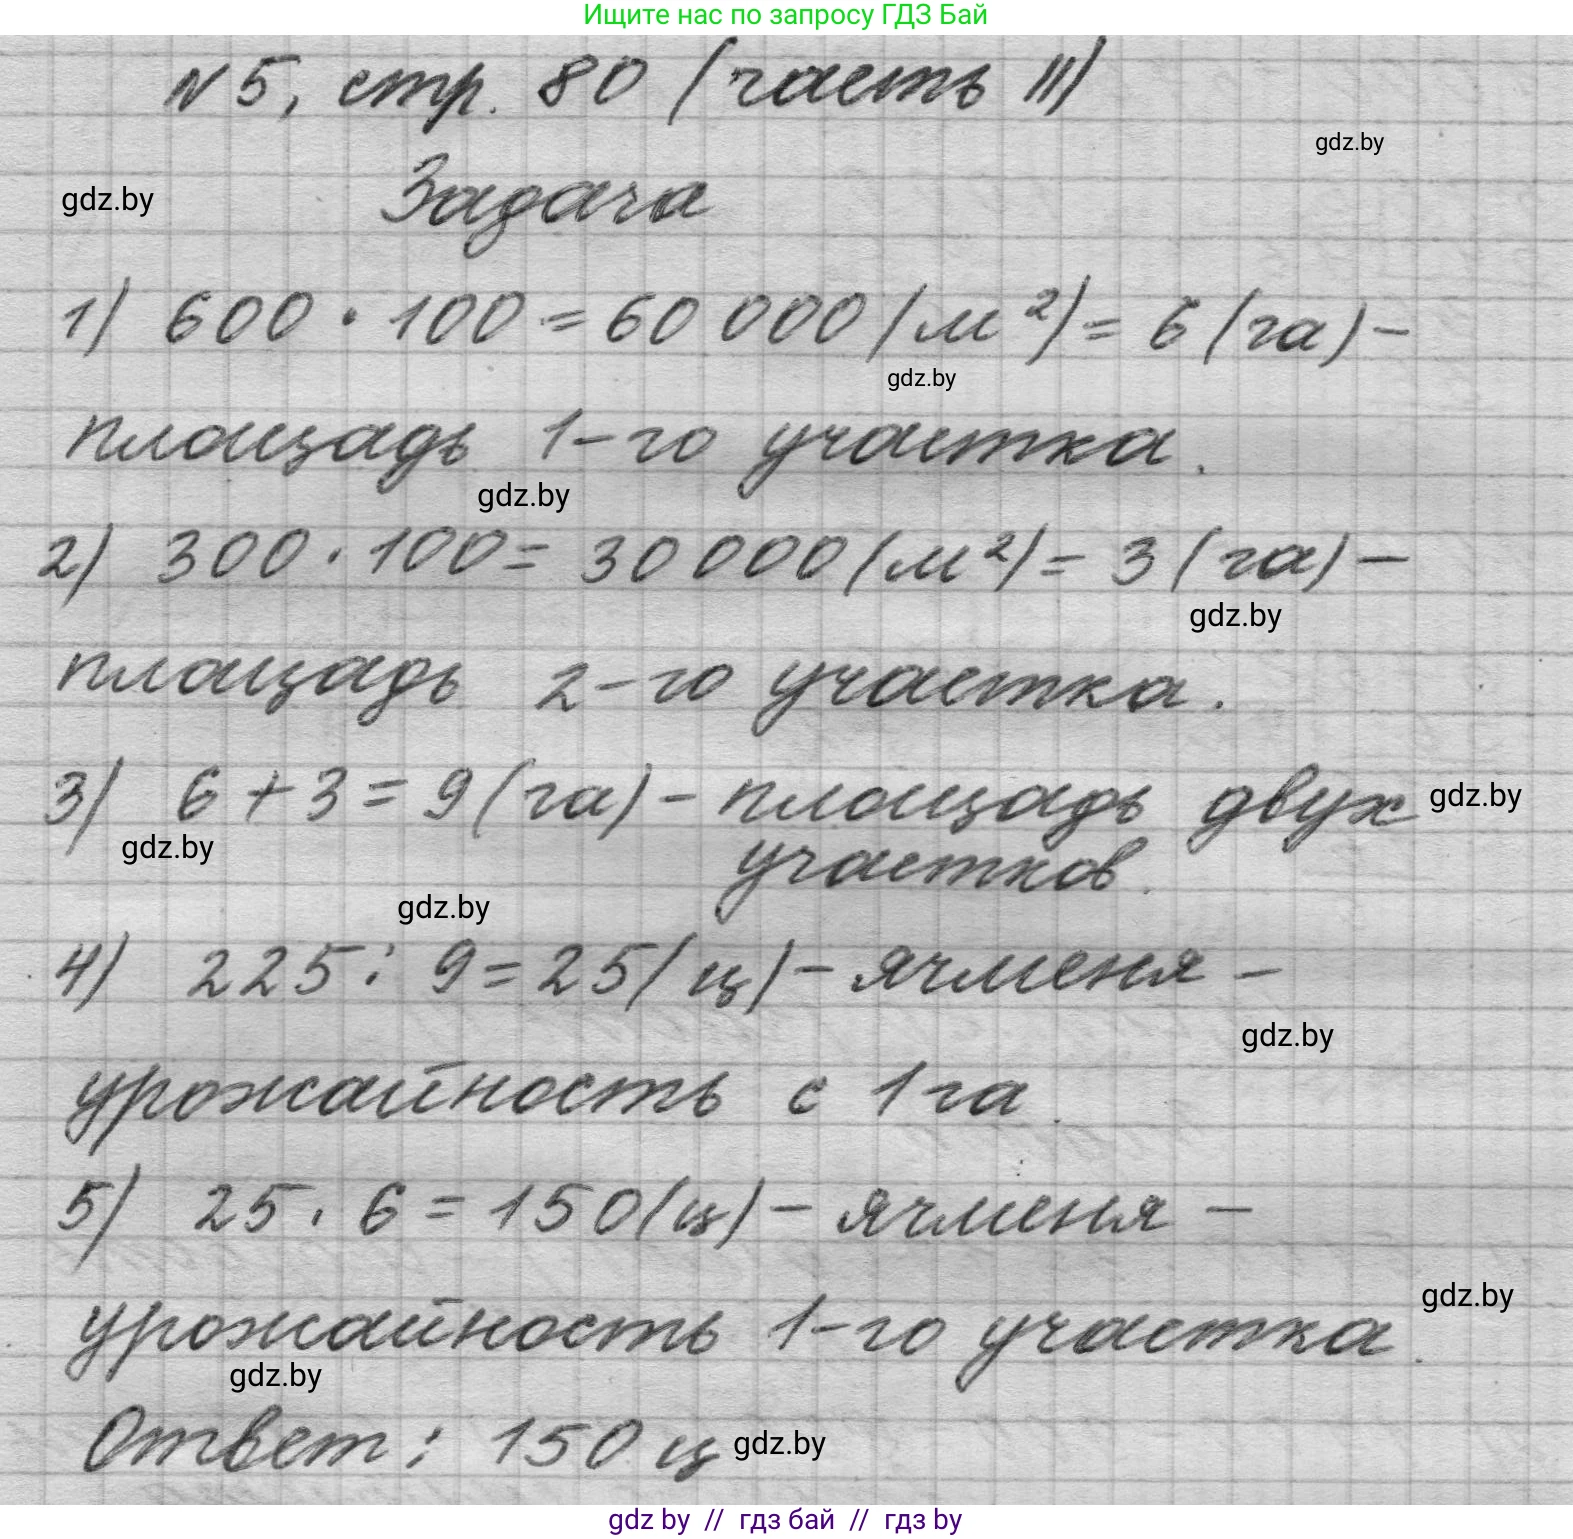 Ищите нас по запросу ГДЗ Бай
№5, стр. 80 (часть II)
gdz.by
gdz.by
Задача
1) 600 · 100 = 60 000 (м²) = 6 (га) –
gdz.by
площадь 1-го участка.
gdz.by
2) 300 · 100 = 30 000 (м²) = 3 (га) –
gdz.by
площадь 2-го участка.
3) 6 + 3 = 9 (га) – площадь двух
gdz.by
gdz.by
участков.
gdz.by
4) 225 : 9 = 25 (ц) – ячменя –
gdz.by
урожайность с 1 га.
5) 25 · 6 = 150 (ц) – ячменя –
gdz.by
урожайность 1-го участка.
gdz.by
Ответ: 150 ц
gdz.by
gdz by // гдз бай // гдз by